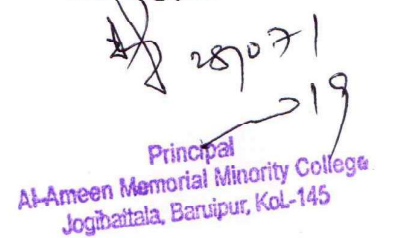 28/07/
19
Principal
Al-Ameen Memorial Minority College
Jogibattala, Baruipur, Kol.-145